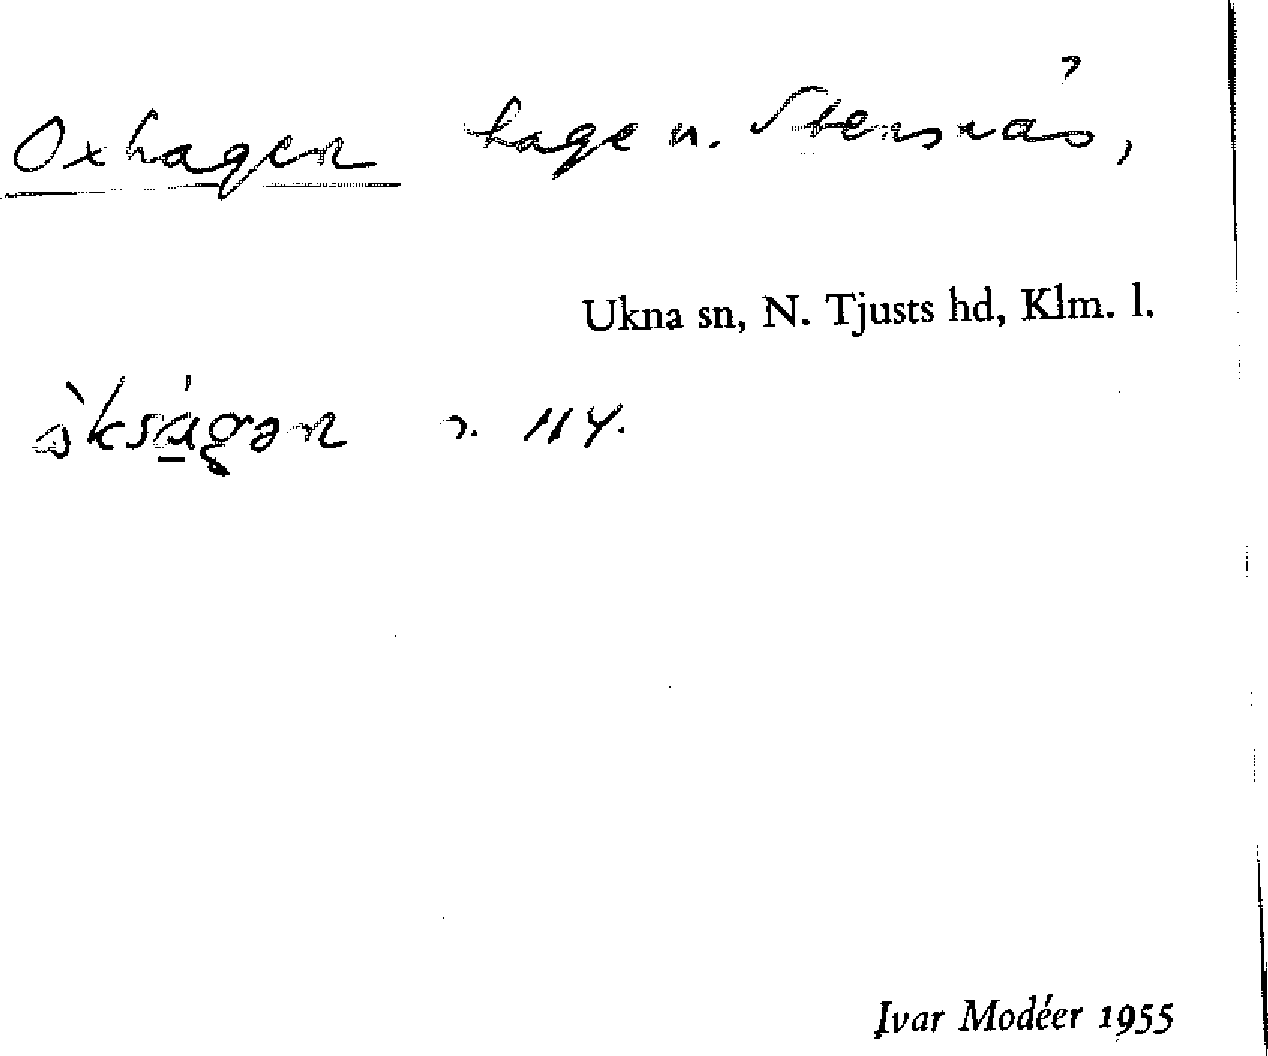 Oxhagen hage n. Stensnäs,
Ukna sn, N. Tjusts hd, Klm. l.
Ivar Modéer 1955